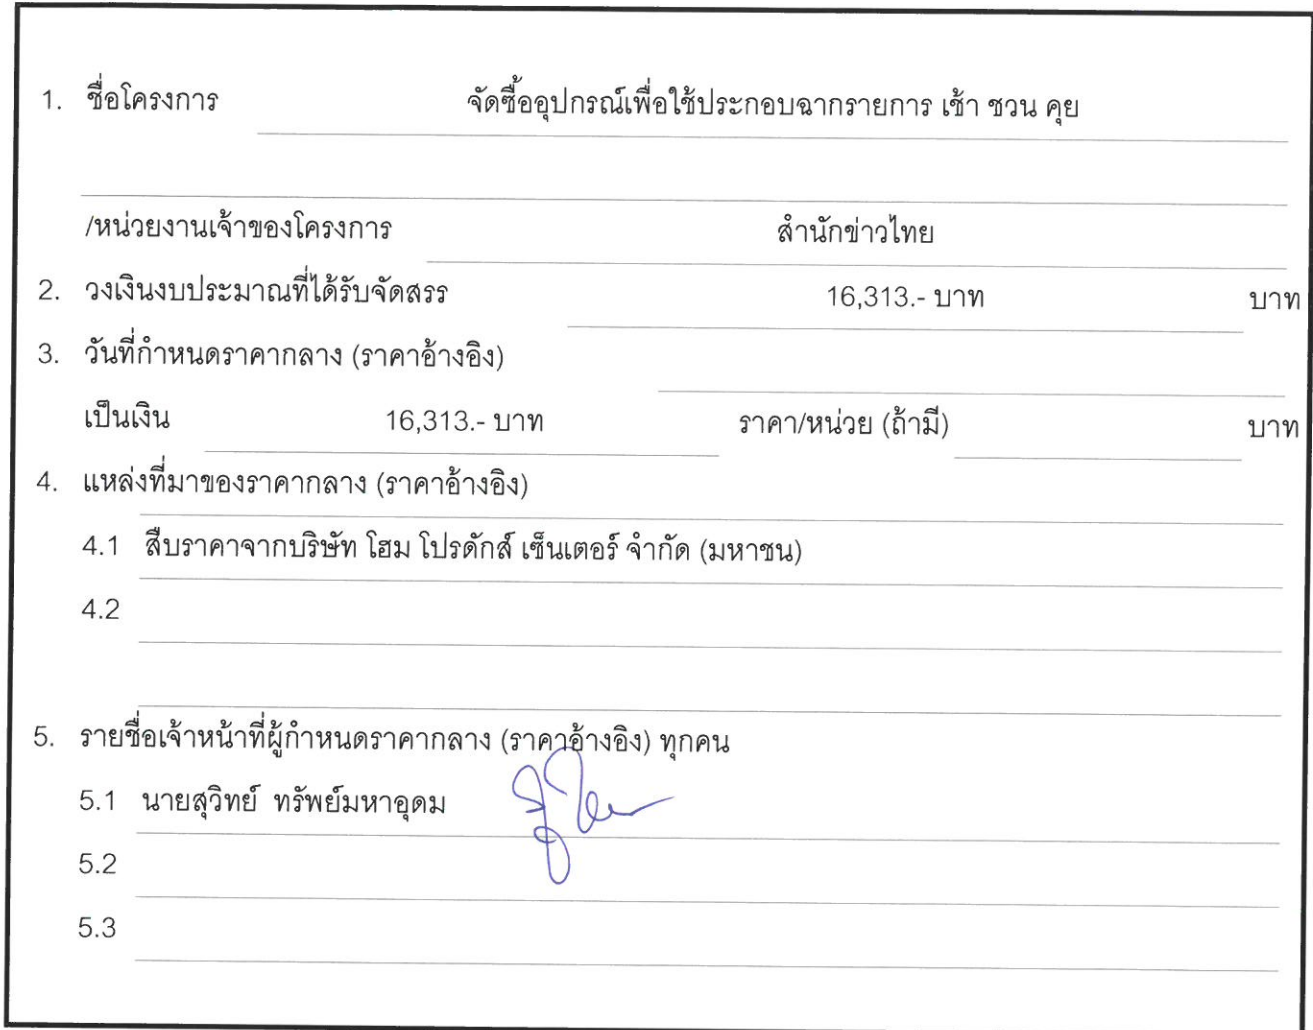 1. ชื่อโครงการ จัดซื้ออุปกรณ์เพื่อใช้ประกอบฉากรายการ เช้า ชวน คุย
/หน่วยงานเจ้าของโครงการ สำนักข่าวไทย
2. วงเงินงบประมาณที่ได้รับจัดสรร 16,313.- บาท บาท
3. วันที่กำหนดราคากลาง (ราคาอ้างอิง)
เป็นเงิน 16,313.- บาท ราคา/หน่วย (ถ้ามี) บาท
4. แหล่งที่มาของราคากลาง (ราคาอ้างอิง)
4.1 สืบราคาจากบริษัท โฮม โปรดักส์ เซ็นเตอร์ จำกัด (มหาชน)
4.2
5. รายชื่อเจ้าหน้าที่ผู้กำหนดราคากลาง (ราคาอ้างอิง) ทุกคน
5.1 นายสุวิทย์ ทรัพย์มหาอุดม
5.2
5.3